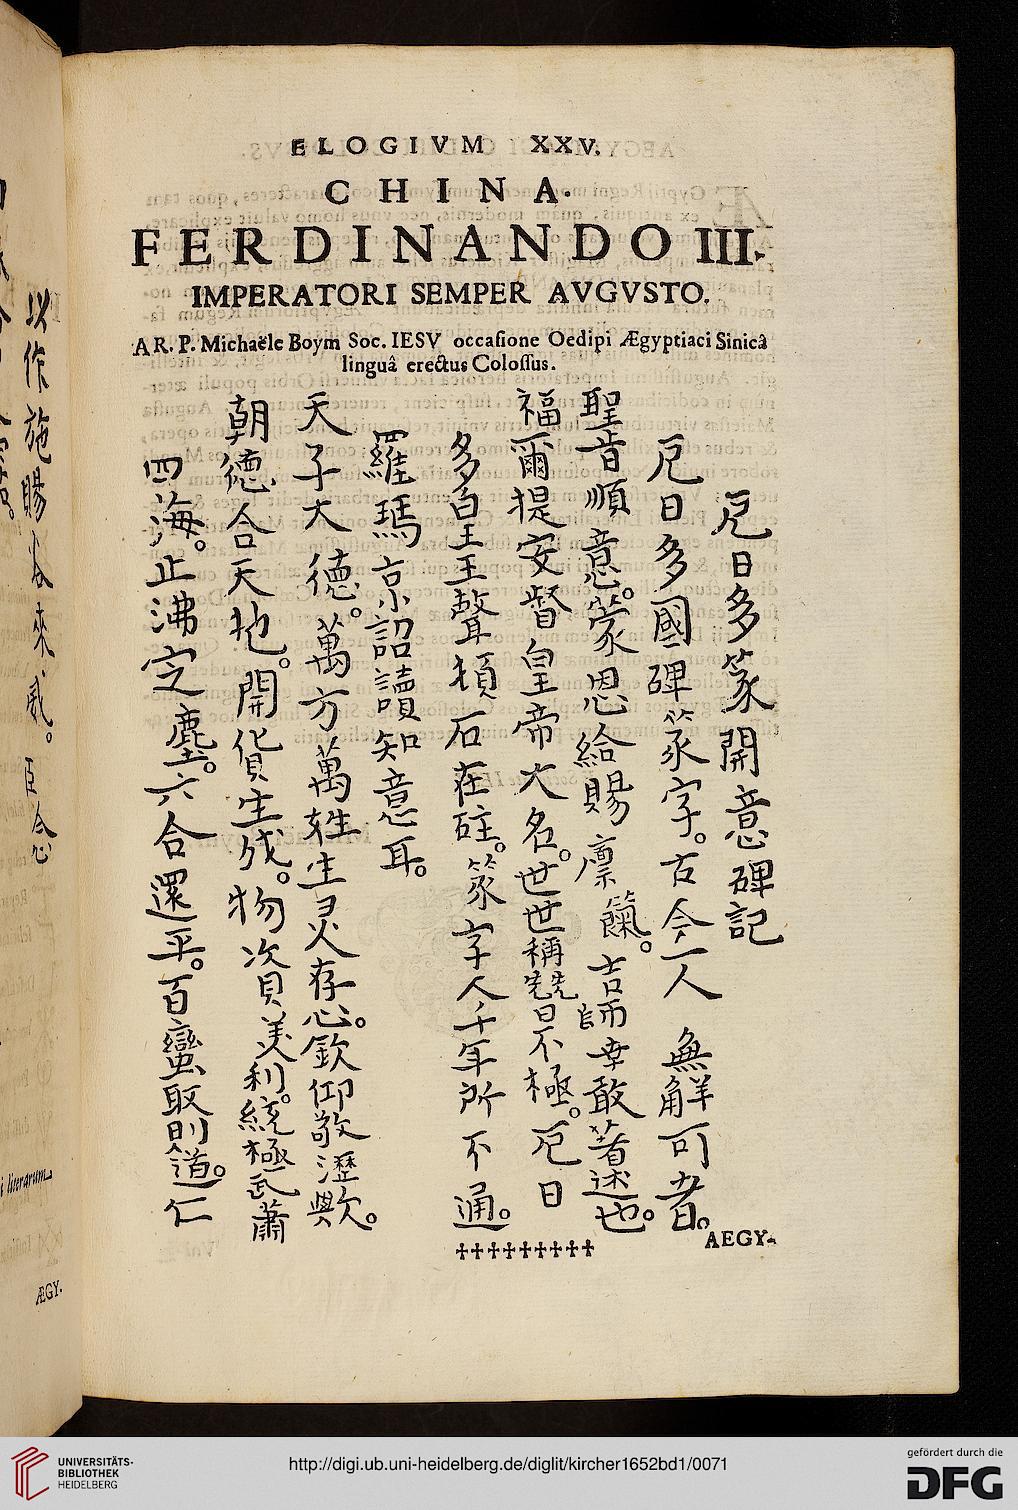 ELOGIVM XXV.
CHINA.
FERDINANDO III.
IMPERATORI SEMPER AVGVSTO.
A R. P. Michaële Boym Soc. IESV occasione Oedipi Ægyptiaci Sinicâ
linguâ erectus Colossus.
厄日多篆開意碑記
厄日多國碑篆字。古今一人無解可者。
聖昔順意。蒙恩給賜廩餼。吉而幸敢著述也。
福爾提安督皇帝大名。世世稱曰不極。厄日
多白王王聲損石在砫。篆字人千年所不通。
羅瑪京小詔讀知意耳。
天子大德。萬方萬姓生灵存心。欽仰敬瀝歟。
朝德合天地。開貨生成。物次資美利。統極武蕭
四海。止沸定塵。六合還平。百蠻取則道。仁
AEGY-
以作施賜
來威。臣念
literarum
ÆGY.
UNIVERSITÄTS-
BIBLIOTHEK
HEIDELBERG
http://digi.ub.uni-heidelberg.de/diglit/kircher1652bd1/0071
gefördert durch die
DFG